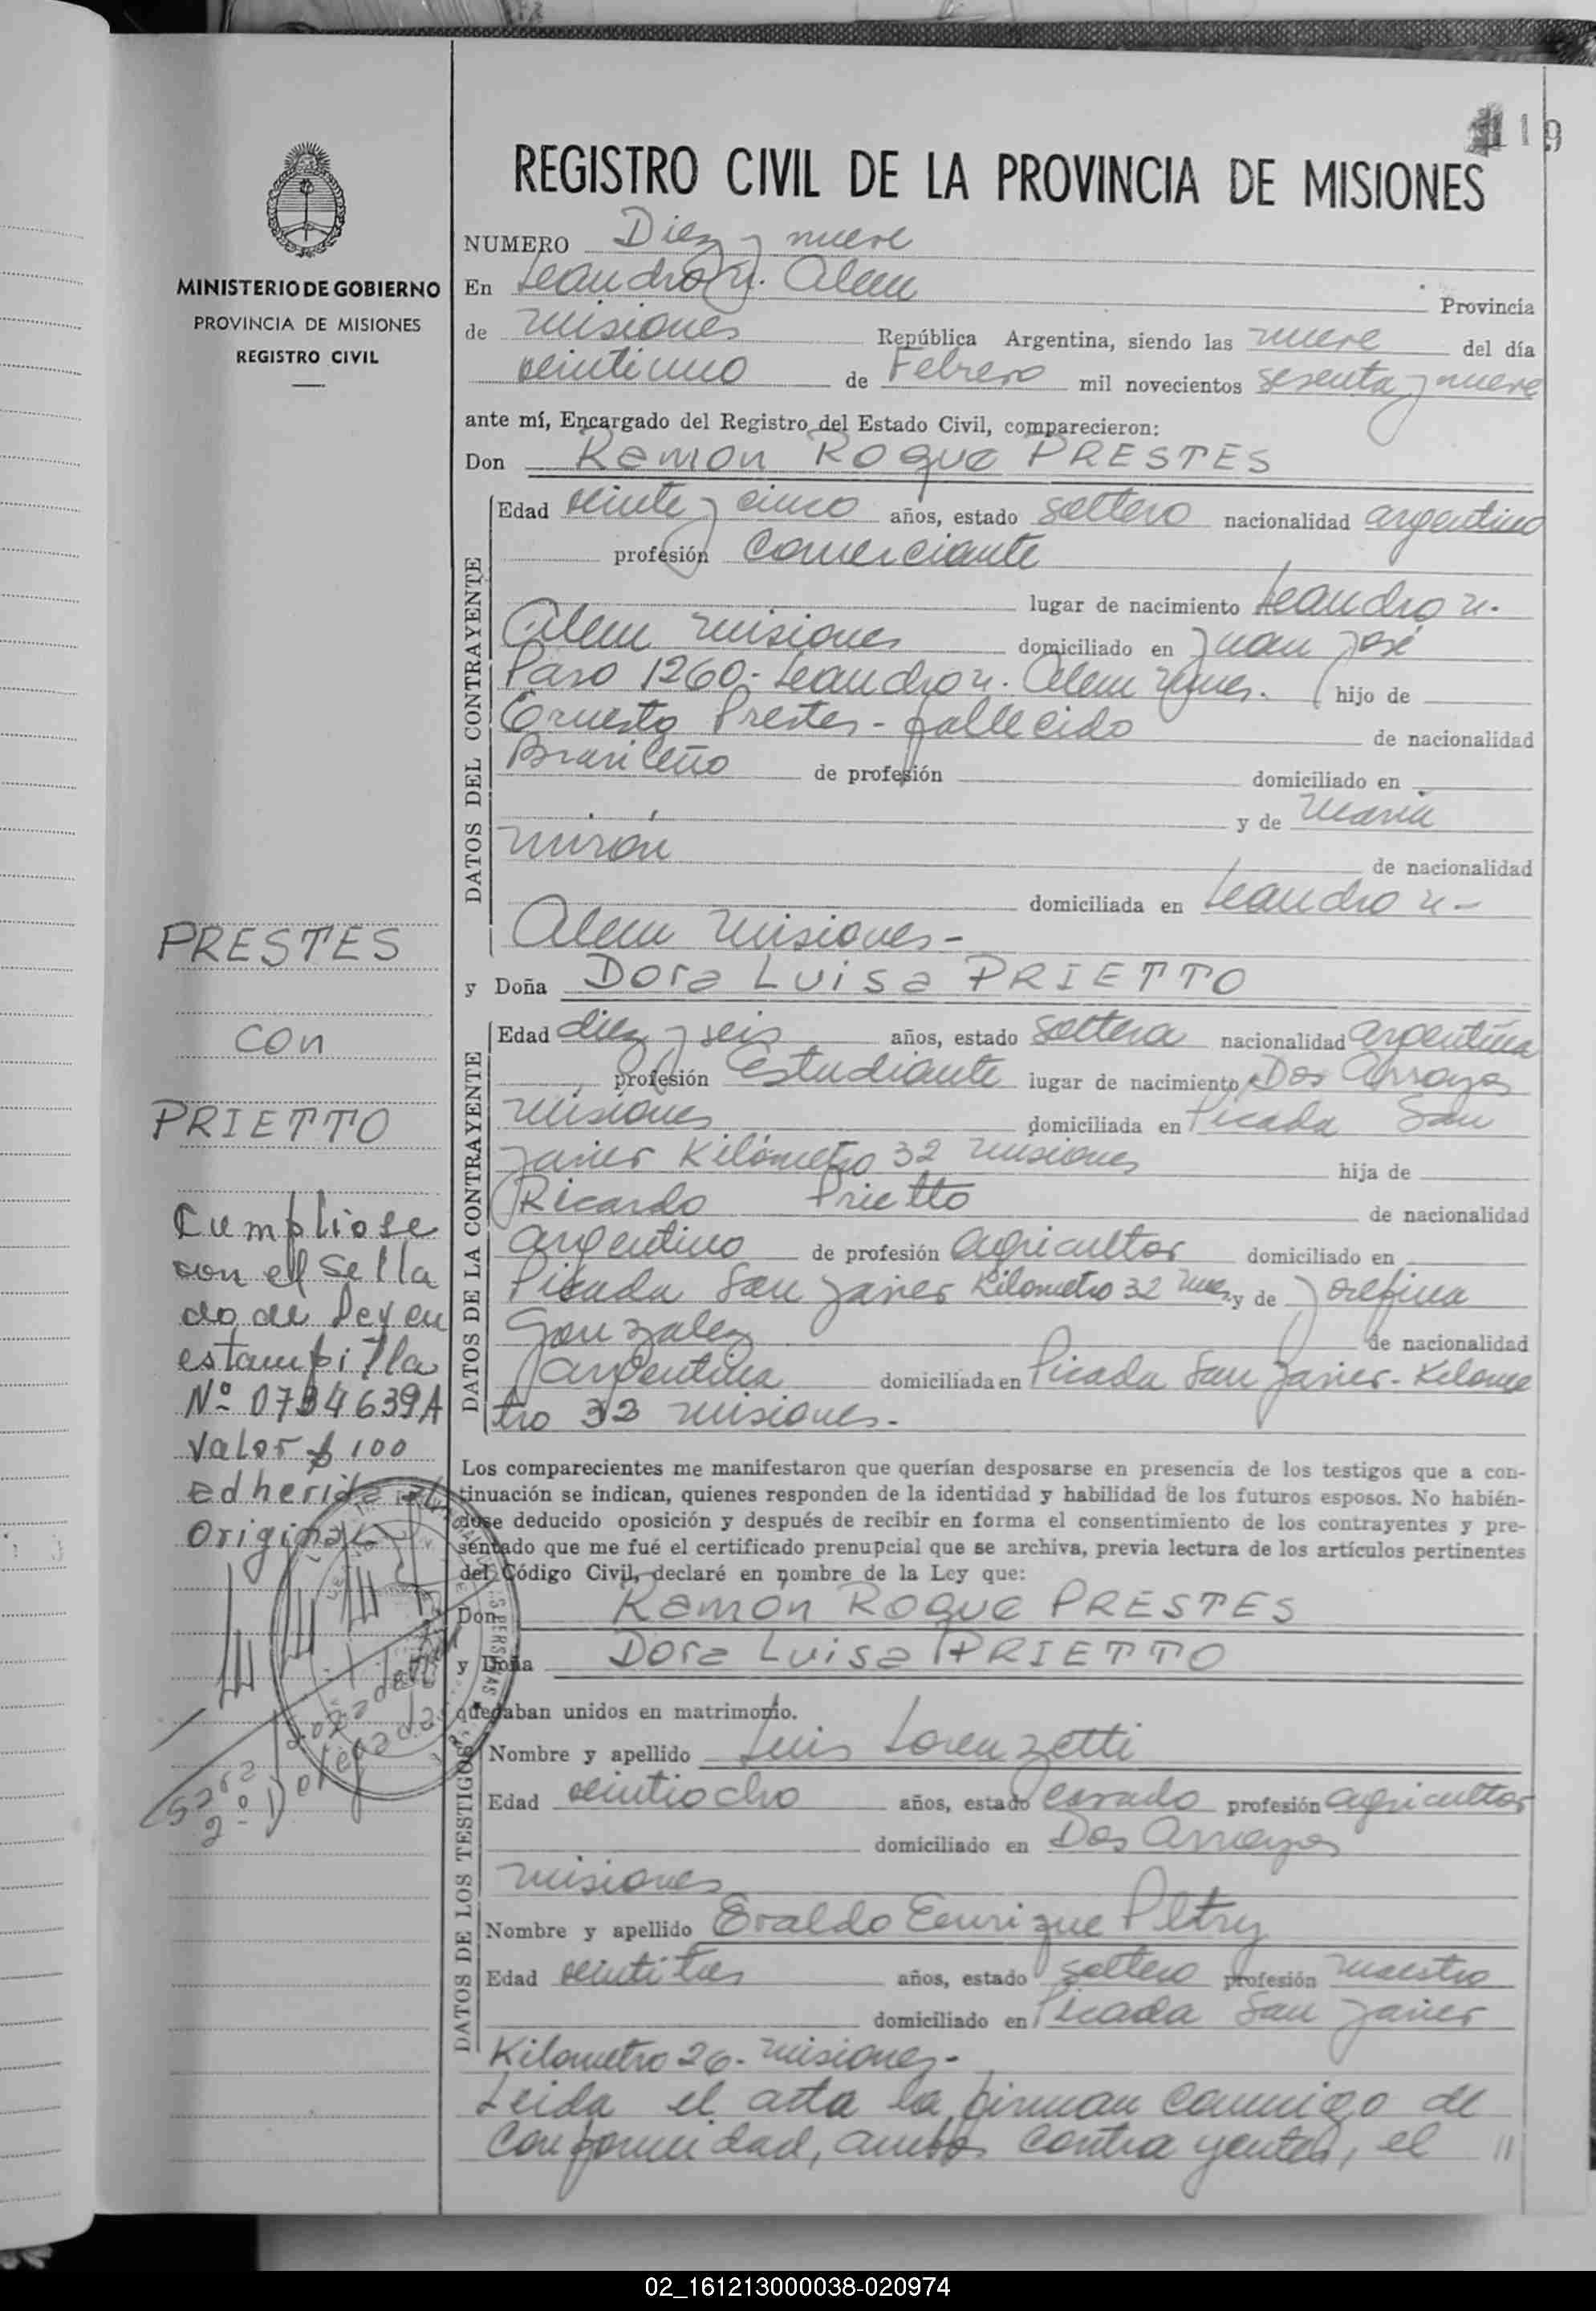 19
REGISTRO CIVIL DE LA PROVINCIA DE MISIONES
MINISTERIO DE GOBIERNO
PROVINCIA DE MISIONES
REGISTRO CIVIL
PRESTES
con
PRIETTO
Cumpliose
con el sella
do de Ley en
estampilla
Nº 0734639A
Valor $ 100
adherida al
Original
2º Delegada
NUMERO Diez y nueve
En Leandro N. Alem Provincia
de Misiones República Argentina, siendo las nueve del día
veintiuno de Febrero mil novecientos sesenta y nueve
ante mí, Encargado del Registro del Estado Civil, comparecieron:
Don Ramón Roque PRESTES
DATOS DEL CONTRAYENTE
Edad veinte y cinco años, estado soltero nacionalidad argentino
profesión Comerciante
lugar de nacimiento Leandro N.
Alem Misiones domiciliado en Juan José
Paso 1260.- Leandro N. Alem Mnes. hijo de
Ernesto Prestes - fallecido de nacionalidad
Brasileño de profesión domiciliado en
y de María
Mirón de nacionalidad
domiciliada en Leandro N-
Alem Misiones-
y Doña Dora Luisa PRIETTO
DATOS DE LA CONTRAYENTE
Edad diez y seis años, estado soltera nacionalidad argentina
profesión Estudiante lugar de nacimiento Dos Arroyos
Misiones domiciliada en Picada San
Javier Kilómetro 32 Misiones hija de
Ricardo Prietto de nacionalidad
argentino de profesión agricultor domiciliado en
Picada San Javier Kilometro 32 Mnes, y de Josefina
Gonzalez de nacionalidad
argentina domiciliada en Picada San Javier- Kilome
tro 32 Misiones.-
Los comparecientes me manifestaron que querían desposarse en presencia de los testigos que a con-
tinuación se indican, quienes responden de la identidad y habilidad de los futuros esposos. No habién-
dose deducido oposición y después de recibir en forma el consentimiento de los contrayentes y pre-
sentado que me fué el certificado prenupcial que se archiva, previa lectura de los artículos pertinentes
del Código Civil, declaré en nombre de la Ley que:
Don Ramón Roque PRESTES
y Doña Dora Luisa PRIETTO
quedaban unidos en matrimonio.
DATOS DE LOS TESTIGOS
Nombre y apellido Luis Lorenzetti
Edad veintiocho años, estado casado profesión agricultor
domiciliado en Dos Arroyos
Misiones
Nombre y apellido Evaldo Enrique Petry
Edad veintitres años, estado soltero profesión maestro
domiciliado en Picada San Javier
Kilometro 26.- Misiones-
Leida el acta la firman conmigo de
conformidad, ambos contrayentes, el //
02_161213000038-020974